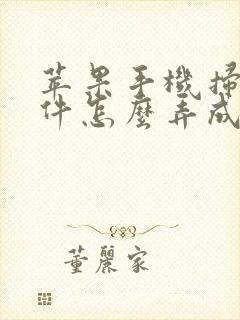 苹果手機掃
件怎麼弄成
董麗家